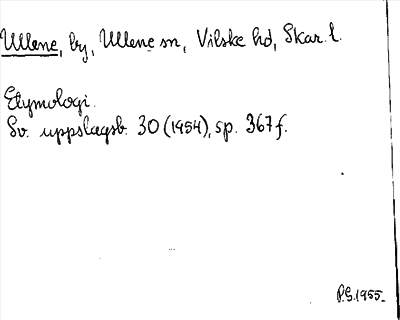 Ullene, by, Ullene sn, Vilske hd, Skar. l.
Etymologi.
Sv. uppslagsb. 30 (1954), sp. 367 f.
P.G. 1955.